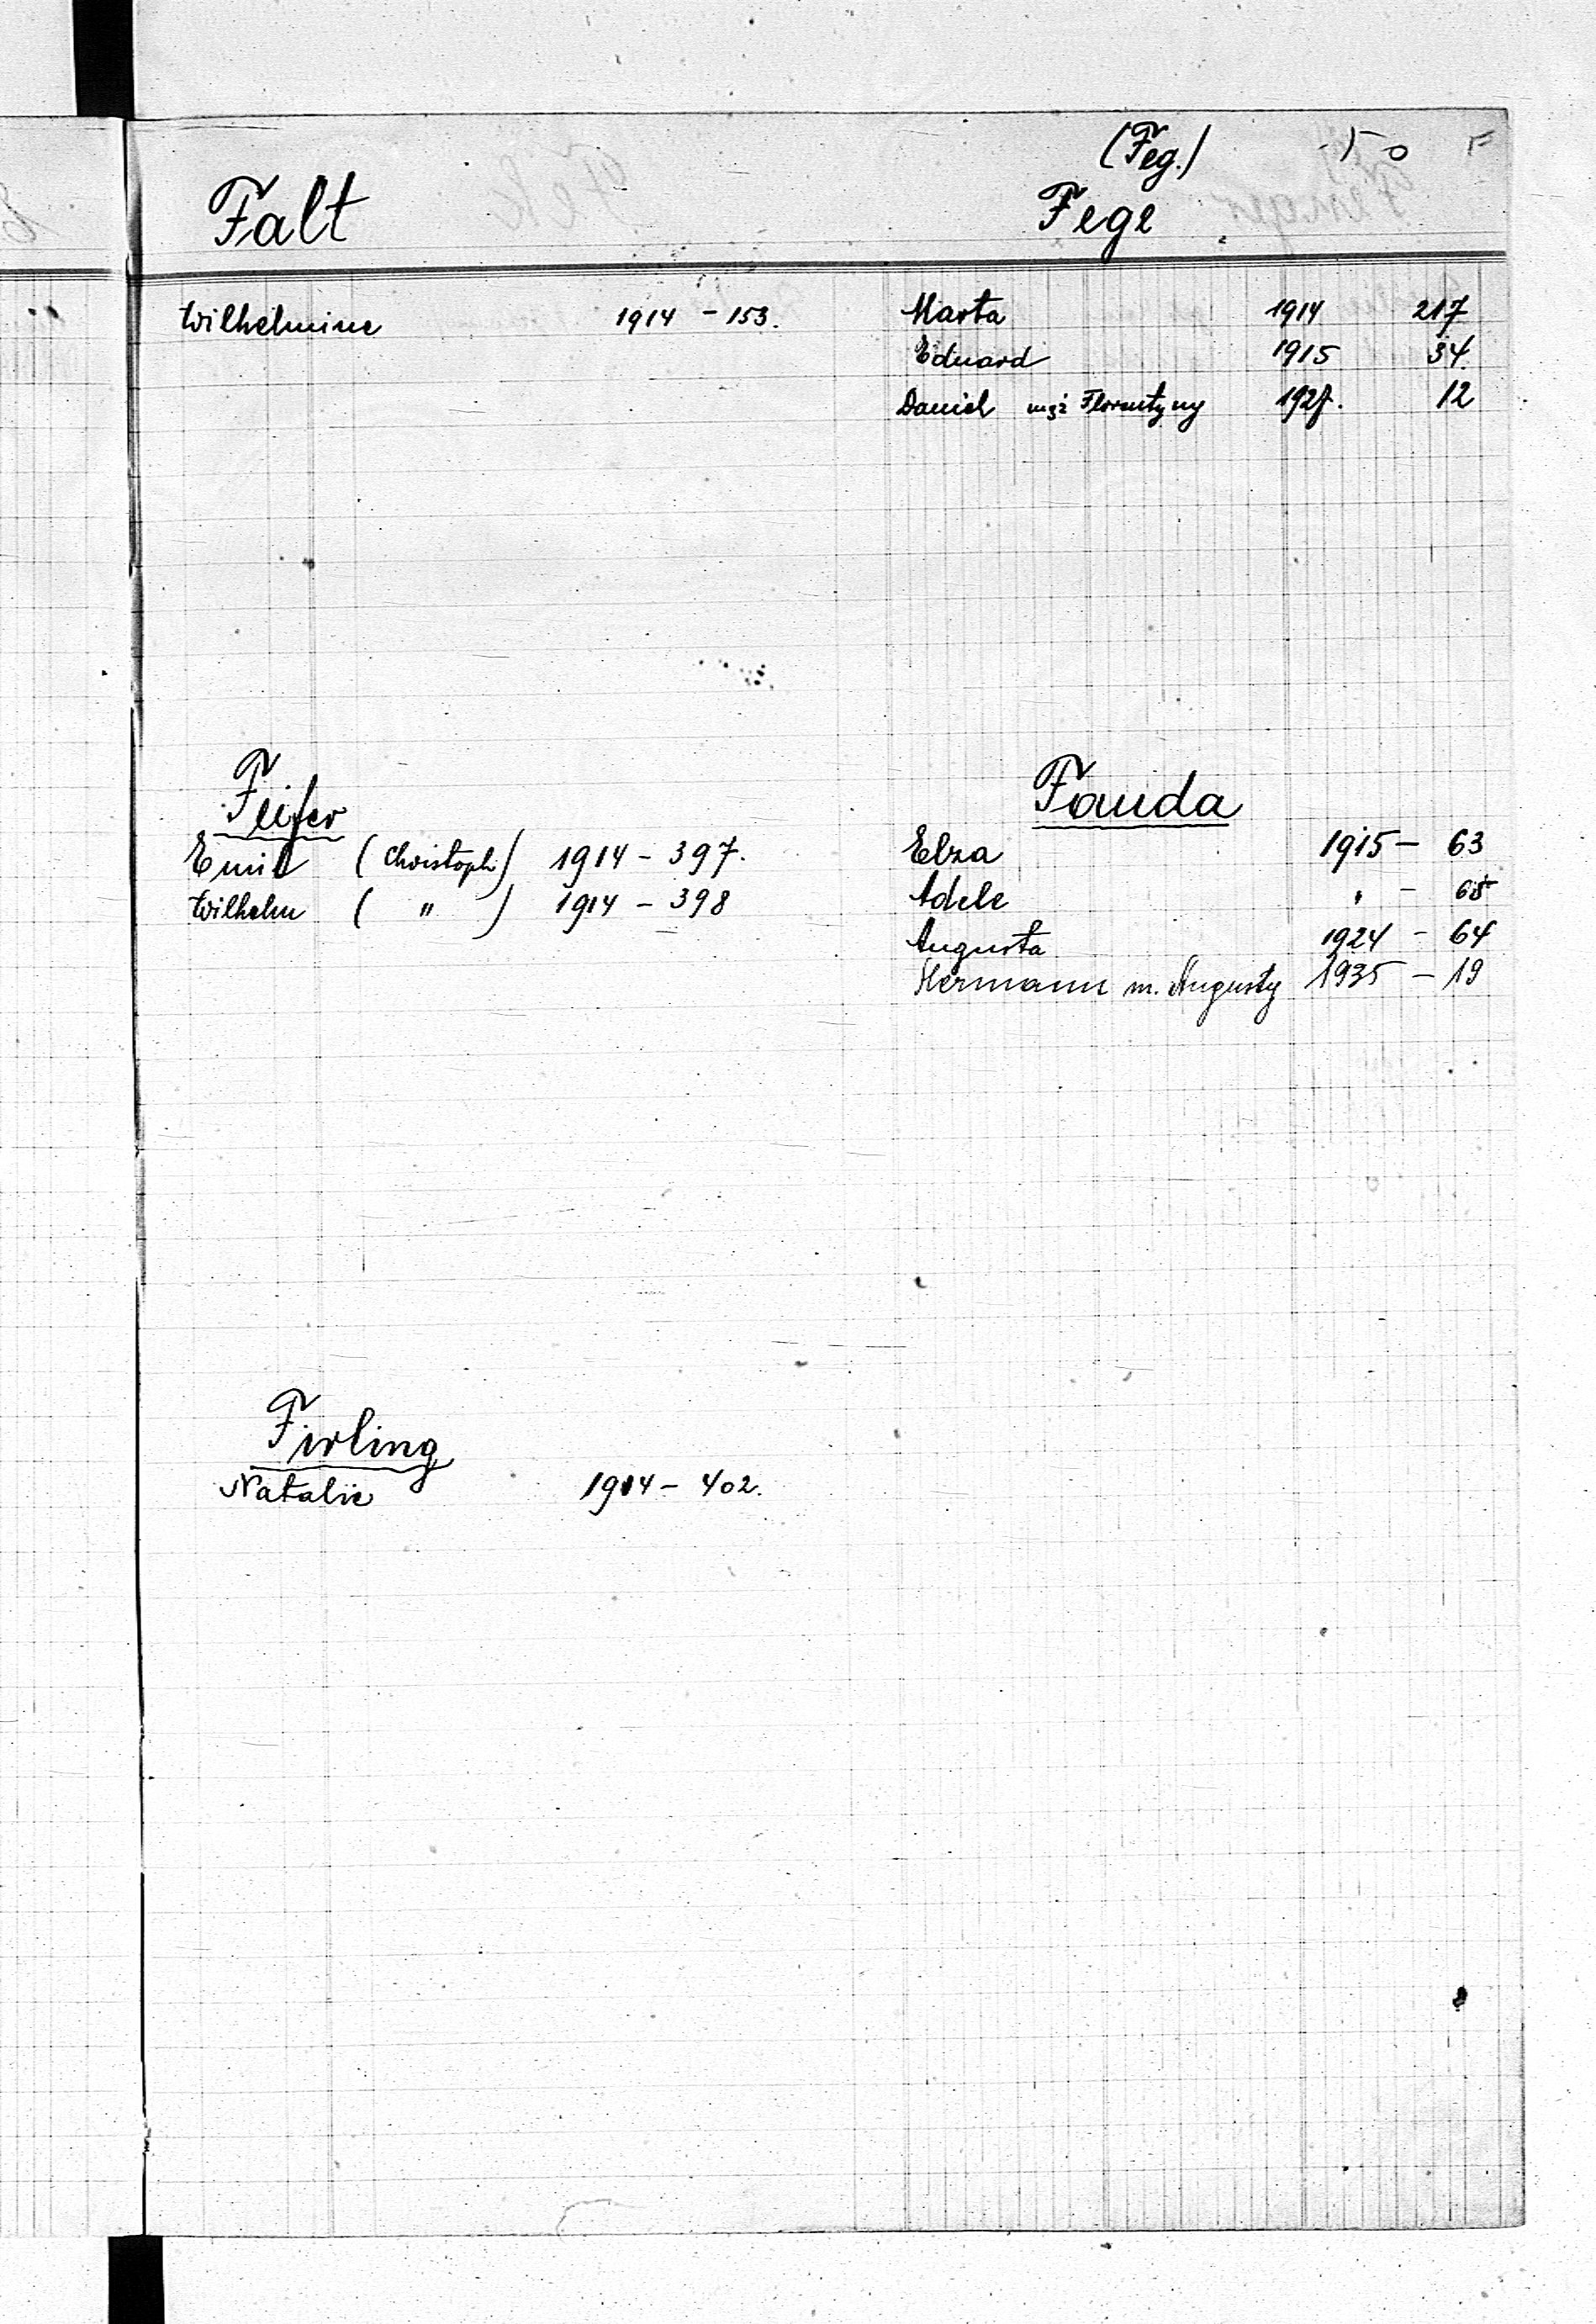 Falt
Wilhelmine 1914 - 153.
Feifer
Emil (Christoph) 1914 - 397.
Wilhelm ( " ) 1914 - 398
Firling
Natalie 1914 - 402.
(Feg.)
Fege
Marta 1914 217
Eduard 1915 34.
Daniel mąż Florentyny 1927. 12
Fauda
Elza 1915 - 63
Adele " - 65
Augusta 1924 - 64
Hermann m. Augusty 1935 - 19